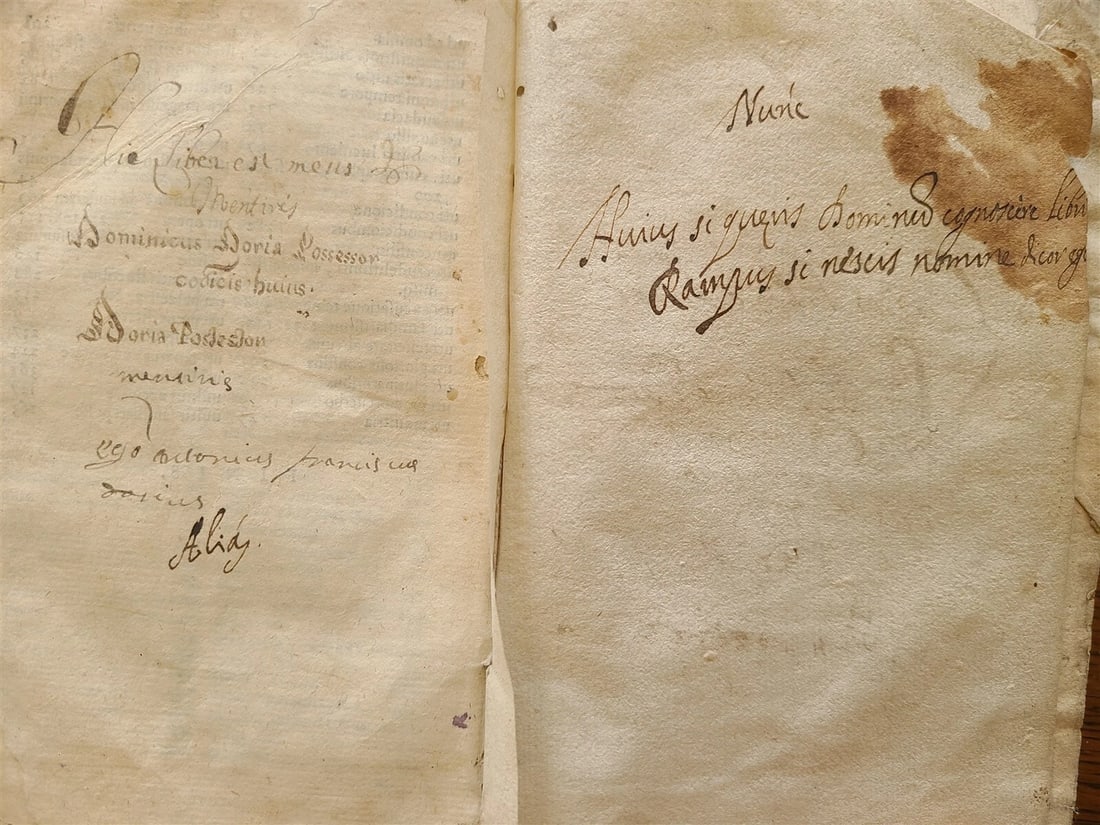 Hic liber est meus
Mentiris
Dominicus Doria Possessor
codicis huius.
Doria Possessor
mentiris
ego antonius franciscus
dorius
Aliàs.
Nunc
Huius si quęris Dominũ cognoscere libri
Rampus si nescis nomine dicor ego